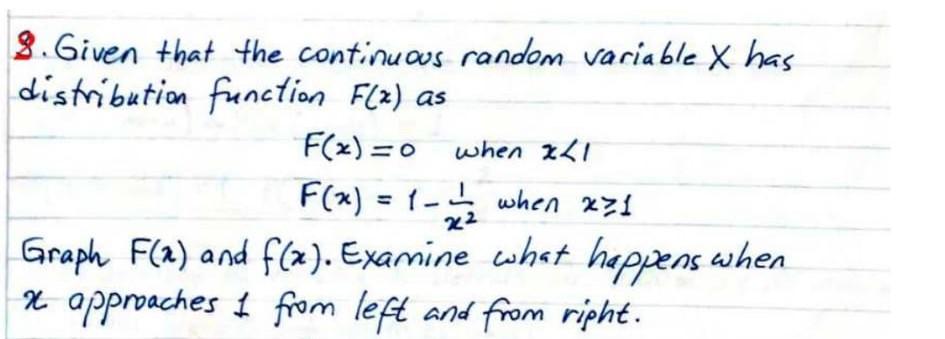 3. Given that the continuous random variable X has
distribution function F(x) as
F(x) = 0 when x<1
F(x) = 1 - 1/x² when x≥1
Graph F(x) and f(x). Examine what happens when
x approaches 1 from left and from right.